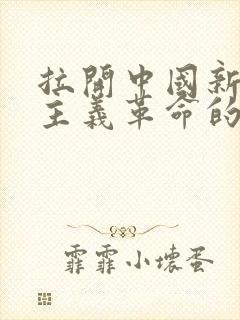 拉開中國新
主義革命的
霏霏小壞蛋